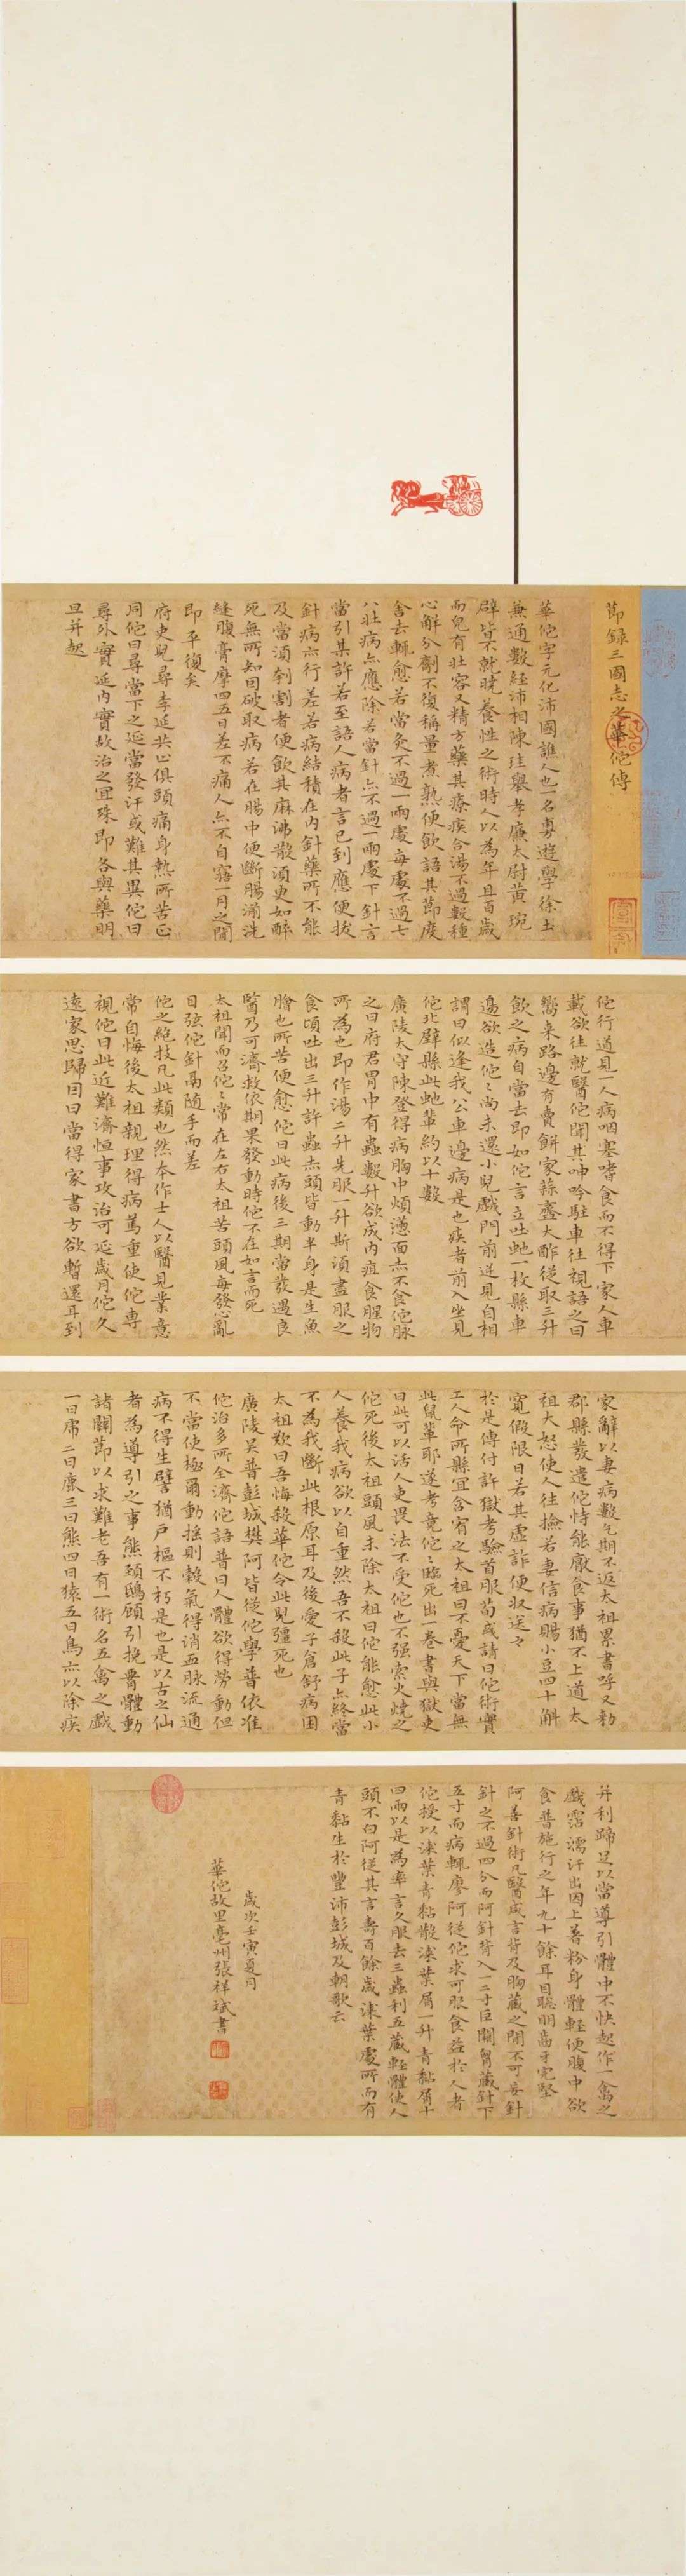 節錄三國志之華佗傳
華佗字元化沛國譙人也一名旉遊學徐土
兼通數經沛相陳珪舉孝廉太尉黃琬
辟皆不就曉養性之術時人以為年且百歲
而皃有壯容又精方藥其療疾合湯不過數種
心解分劑不復稱量煮熟便飲語其節度
舍去輒愈若當灸不過一兩處每處不過七
八壯病亦應除若當針亦不過一兩處下針言
當引某許若至語人病者言已到應便拔
針病亦行差若病結積在內針藥所不能
及當須刳割者便飲其麻沸散須臾如醉
死無所知因破取病若在腸中便斷腸湔洗
縫腹膏摩四五日差不痛人亦不自寤一月之間
即平復矣
府吏兒尋李延共止俱頭痛身熱所苦正
同佗曰尋當下之延當發汗或難其異佗曰
尋外實延內實故治之宜殊即各與藥明
旦并起
佗行道見一人病咽塞嗜食而不得下家人車
載欲往就醫佗聞其呻吟駐車往視語之曰
嚮來路邊有賣餅家蒜齏大酢從取三升
飲之病自當去即如佗言立吐蛇一枚縣車
邊欲造佗佗尚未還小兒戲門前逆見自相
謂曰似逢我公車邊病是也疾者前入坐見
佗北壁縣此蛇輩約以十數
廣陵太守陳登得病胸中煩懣面赤不食佗脈
之曰府君胃中有蟲數升欲成內疽食腥物
所為也即作湯二升先服一升斯須盡服之
食頃吐出三升許蟲赤頭皆動半身是生魚
膾也所苦便愈佗曰此病後三期當發遇良
醫乃可濟救依期果發動時佗不在如言而死
太祖聞而召佗佗常在左右太祖苦頭風每發心亂
目弦佗針鬲隨手而差
佗之絕技凡此類也然本作士人以醫見業意
常自悔後太祖親理得病篤重使佗專
視佗曰此近難濟恒事攻治可延歲月佗久
遠家思歸因曰當得家書方欲暫還耳到
家辭以妻病數乞期不返太祖累書呼又勑
郡縣發遣佗恃能厭食事猶不上道太
祖大怒使人往撿若妻信病賜小豆四十斛
寬假限日若其虛詐便收送之
於是傳付許獄考驗首服荀彧請曰佗術實
工人命所縣宜含宥之太祖曰不憂天下當無
此鼠輩耶遂考竟佗佗臨死出一卷書與獄吏
曰此可以活人吏畏法不受佗也不強索火燒之
佗死後太祖頭風未除太祖曰佗能愈此小
人養我病欲以自重然吾不殺此子亦終當
不為我斷此根原耳及後愛子倉舒病困
太祖歎曰吾悔殺華佗令此兒彊死也
廣陵吳普彭城樊阿皆從佗學普依准
佗治多所全濟佗語普曰人體欲得勞動但
不當使極爾動搖則穀氣得消血脈流通
病不得生譬猶戶樞不朽是也是以古之仙
者為導引之事熊頸鴟顧引挽腰體動
諸關節以求難老吾有一術名五禽之戲
一曰虎二曰鹿三曰熊四曰猿五曰鳥亦以除疾
并利蹄足以當導引體中不快起作一禽之
戲霑濡汗出因上著粉身體輕便腹中欲
食普施行之年九十餘耳目聰明齒牙完堅
阿善針術凡醫咸言背及胸藏之間不可妄針
針之不過四分而阿針背入一二寸巨闕胷藏針下
五寸而病輒瘳阿從佗求可服食益於人者
佗授以漆葉青黏散漆葉屑一升青黏屑十
四兩以是為率言久服去三蟲利五藏輕體使人
頭不白阿從其言壽百餘歲漆葉處所而有
青黏生於豐沛彭城及朝歌云
歲次壬寅夏月
華佗故里亳州張祥斌書